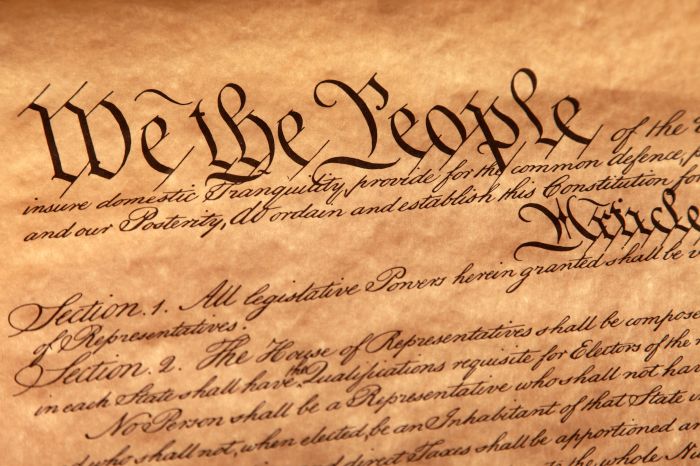 We the People of the
insure domestic Tranquility, provide for the common defence,
and our Posterity, do ordain and establish this Constitution for
Article
Section. 1. All legislative Powers herein granted shall be
of Representatives.
Section. 2. The House of Representatives shall be compose
in each State shall have the Qualifications requisite for Electors of the
No Person shall be a Representative who shall not hav
who shall not, when elected, be an Inhabitant of that State
direct Taxes shall be apportioned a
the whole N